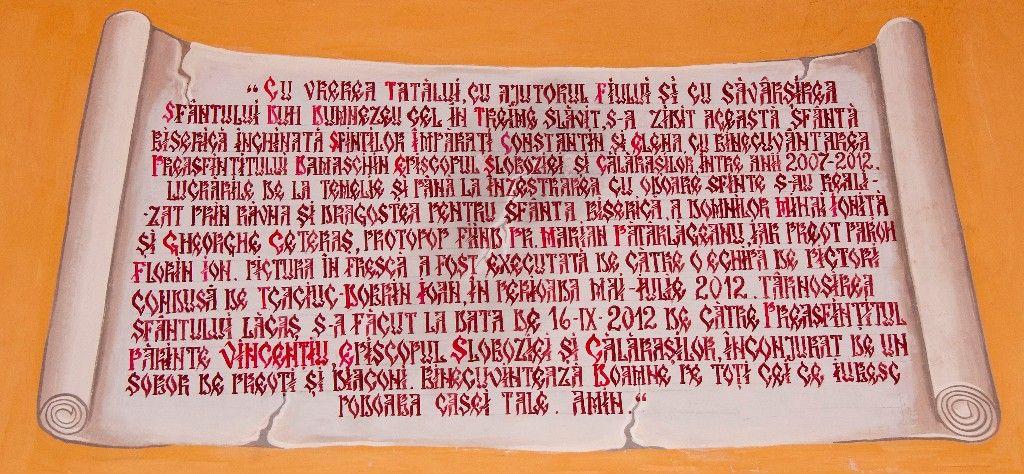 “CU VREREA TATĂLUI, CU AJUTORUL FIULUI ŞI CU SĂVÂRŞIREA
SFÂNTULUI DUH DUMNEZEU CEL ÎN TREIME SLĂVIT, S-A ZIDIT ACEASTĂ SFÂNTĂ
BISERICĂ ÎNCHINATĂ SFINŢILOR ÎMPĂRAŢI CONSTANTIN ŞI ELENA, CU BINECUVÂNTAREA
PREASFINŢITULUI DAMASCHIN EPISCOPUL SLOBOZIEI ŞI CĂLĂRAŞILOR, ÎNTRE ANII 2007-2012.
LUCRĂRILE DE LA TEMELIE ŞI PÂNĂ LA ÎNZESTRAREA CU ODOARE SFINTE S-AU REALI-
-ZAT PRIN RÂVNA ŞI DRAGOSTEA PENTRU SFÂNTA BISERICĂ, A DOMNILOR MIHAI IONIŢĂ
ŞI GHEORGHE CETERAŞ, PROTOPOP FIIND PR. MARIAN PATARLAGEANU, IAR PREOT PAROH
FLORIN ION. PICTURA ÎN FRESCĂ A FOST EXECUTATĂ DE CĂTRE O ECHIPĂ DE PICTORI
CONDUSĂ DE TCACIUC-DOBRIN IOAN, ÎN PERIOADA MAI-IULIE 2012. TÂRNOSIREA
SFÂNTULUI LĂCAŞ S-A FĂCUT LA DATA DE 16-IX-2012 DE CĂTRE PREASFINŢITUL
PĂRINTE VINCENŢIU, EPISCOPUL SLOBOZIEI ŞI CĂLĂRAŞILOR, ÎNCONJURAT DE UN
SOBOR DE PREOŢI ŞI DIACONI. BINECUVINTEAZĂ DOAMNE PE TOŢI CEI CE IUBESC
PODOABA CASEI TALE. AMIN.“